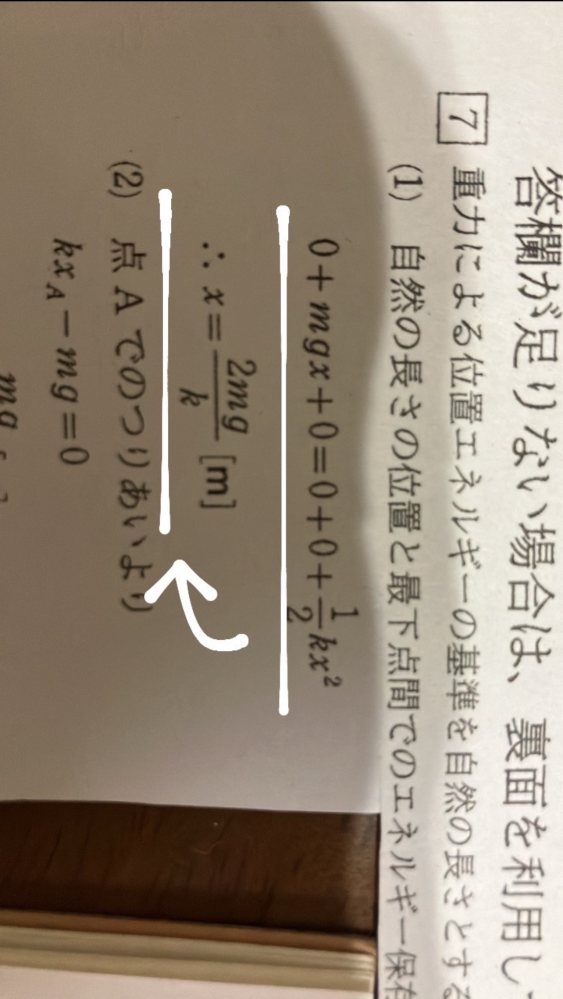 答欄が足りない場合は、裏面を利用し
7 重力による位置エネルギーの基準を自然の長さとする
(1) 自然の長さの位置と最下点間でのエネルギー保存
0 + mgx + 0 = 0 + 0 + \frac{1}{2}kx^2
∴ x = \frac{2mg}{k} [m]
(2) 点 A でのつりあいより
kx_A − mg = 0
mg